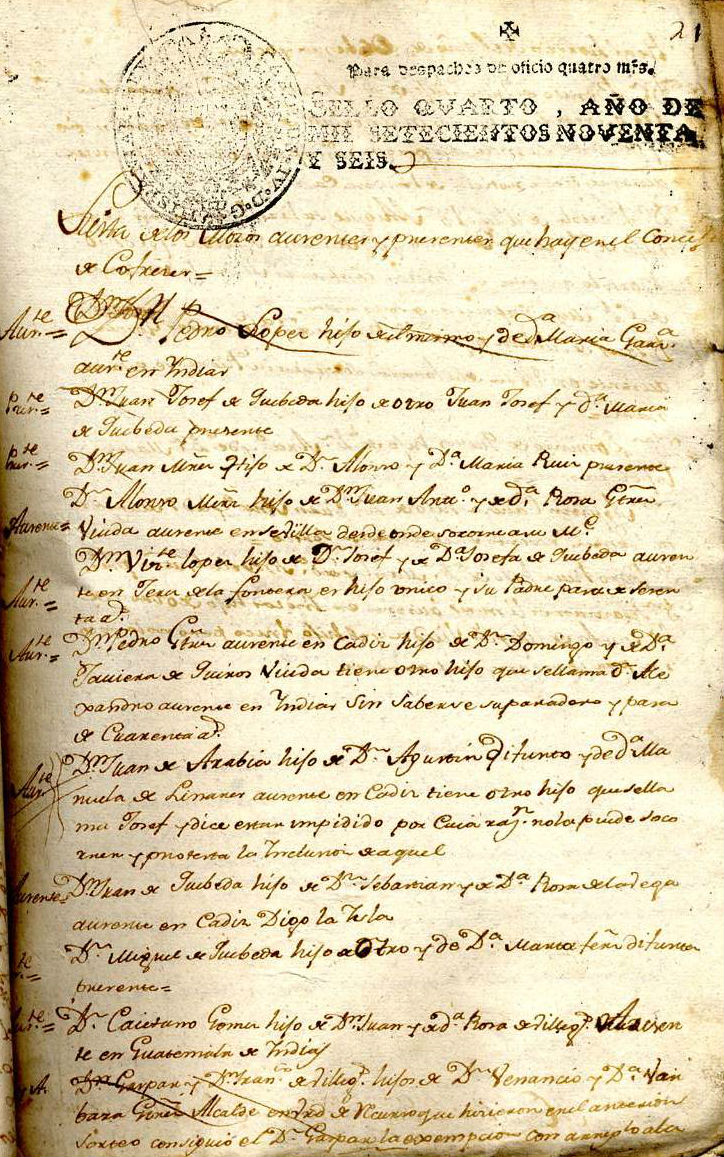 21
Para despachos de oficio quatro mrs.
SELLO QUARTO, AÑO DE
MIL SETECIENTOS NOVENTA
Y SEIS.
Lista de los Mozos ausentes y presentes que hay en el Concejo
de Cofreces=
Dn. Pedro Lopez hijo del mismo y de Da. Maria Gara.
Auste.=
auste. en Indias
Prste.=
Dn. Juan Josef de Quebeda hijo de otro Juan Josef y da. Maria
de Quebeda presente
Prste.=
Dn. Juan hijo de Dn. Alonso y Da. Maria Ruiz presente
Dn. Alonso hijo de Dn. Juan Anto. y de da. Rosa
Ausente=
Viuda ausente en sevilla desde onde socorre a su Me.
Dn. Vizte. lopez hijo de Dn. Josef y de Da. Josefa de Quebeda ausen
Auste.=
te en Jerez de la frontera es hijo unico y su Padre pasa de seten
ta as.
Auste.=
Dn. Pedro ausente en Cadiz hijo de Dn. Domingo y de Da.
Javiera de Quiros Viuda tiene otro hijo que se llama dn. Ale
xandro ausente en Indias sin saberse su paradero y pasa
de Cuarenta as.
Auste.
Dn. Juan de Arabia hijo de Dn. Agustin difunto y de da. Ma
nuela de Linares ausente en Cadiz tiene otro hijo que se lla
ma Josef y dice estar impedido por Cuia razn. no la puede soco
rrer y protesta la Inclusion de aquel
Ausente
Dn. Juan de Quebeda hijo de Dn. Sebastian y de Da. Rosa de
ausente en Cadiz Digo la Isla
Dn. Miguel de Quebeda hijo de Otro y de Da. Maria difunta
te.=
presente=
Auste.=
Dn. Caietano Gomez hijo de Dn. Juan y de da. Rosa de Villegs. Ausen
te en Guatemala de Indias
y A.
Dn. Gaspar y Dn. Franco. de Villegs. hijos de Dn. Venancio y Da. Var
bara Alcalde en que hicieron en el anterior
Sorteo consiguió el Dn. Gaspar la exempcion con arreglo a la